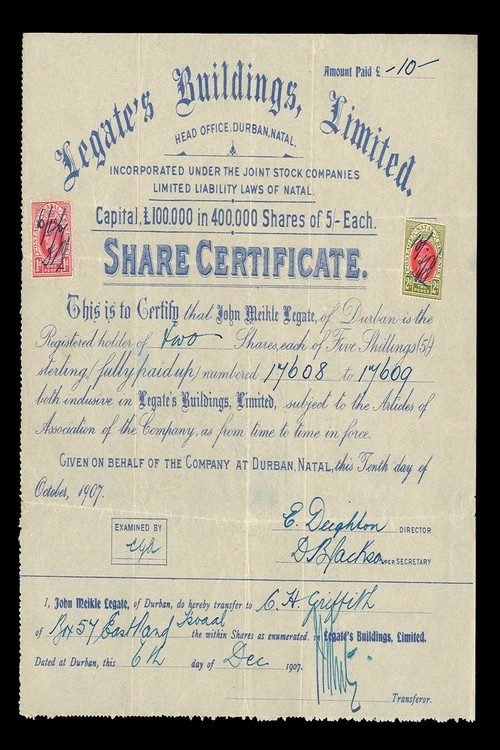 Amount Paid £ -10-
Legate's Buildings, Limited.
HEAD OFFICE, DURBAN, NATAL.
INCORPORATED UNDER THE JOINT STOCK COMPANIES
LIMITED LIABILITY LAWS OF NATAL.
Capital, £100,000 in 400,000 Shares of 5/- Each.
SHARE CERTIFICATE.
This is to Certify that John Meikle Legate, of Durban is the
Registered holder of two Shares, each of Five Shillings (5/-)
sterling, (fully paid up) numbered 17608 to 17609
both inclusive in Legate's Buildings, Limited, subject to the Articles of
Association of the Company, as from time to time in force.
GIVEN ON BEHALF OF THE COMPANY AT DURBAN, NATAL, this Tenth day of
October, 1907.
EXAMINED BY
E. Deighton DIRECTOR
D B Jackson PER SECRETARY
I, John Meikle Legate, of Durban, do hereby transfer to C. H. Griffith
of Box 57 East Rand Tvaal the within Shares as enumerated. in Legate's Buildings, Limited.
Dated at Durban, this 6th day of Dec 1907.
Transferor.